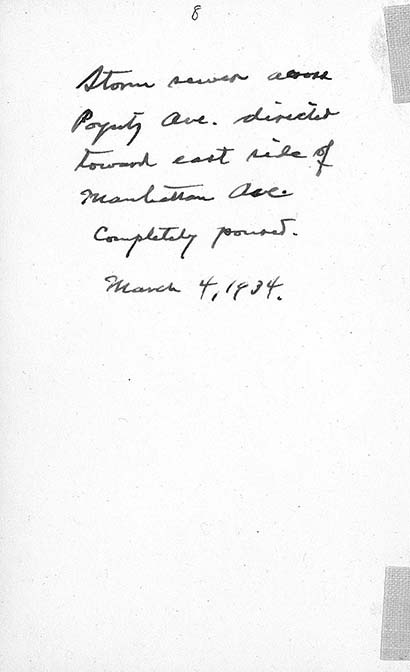 8
Storm sewer across
Poyntz Ave. directed
toward east side of
Manhattan Ave.
Completely poured.
March 4, 1934.